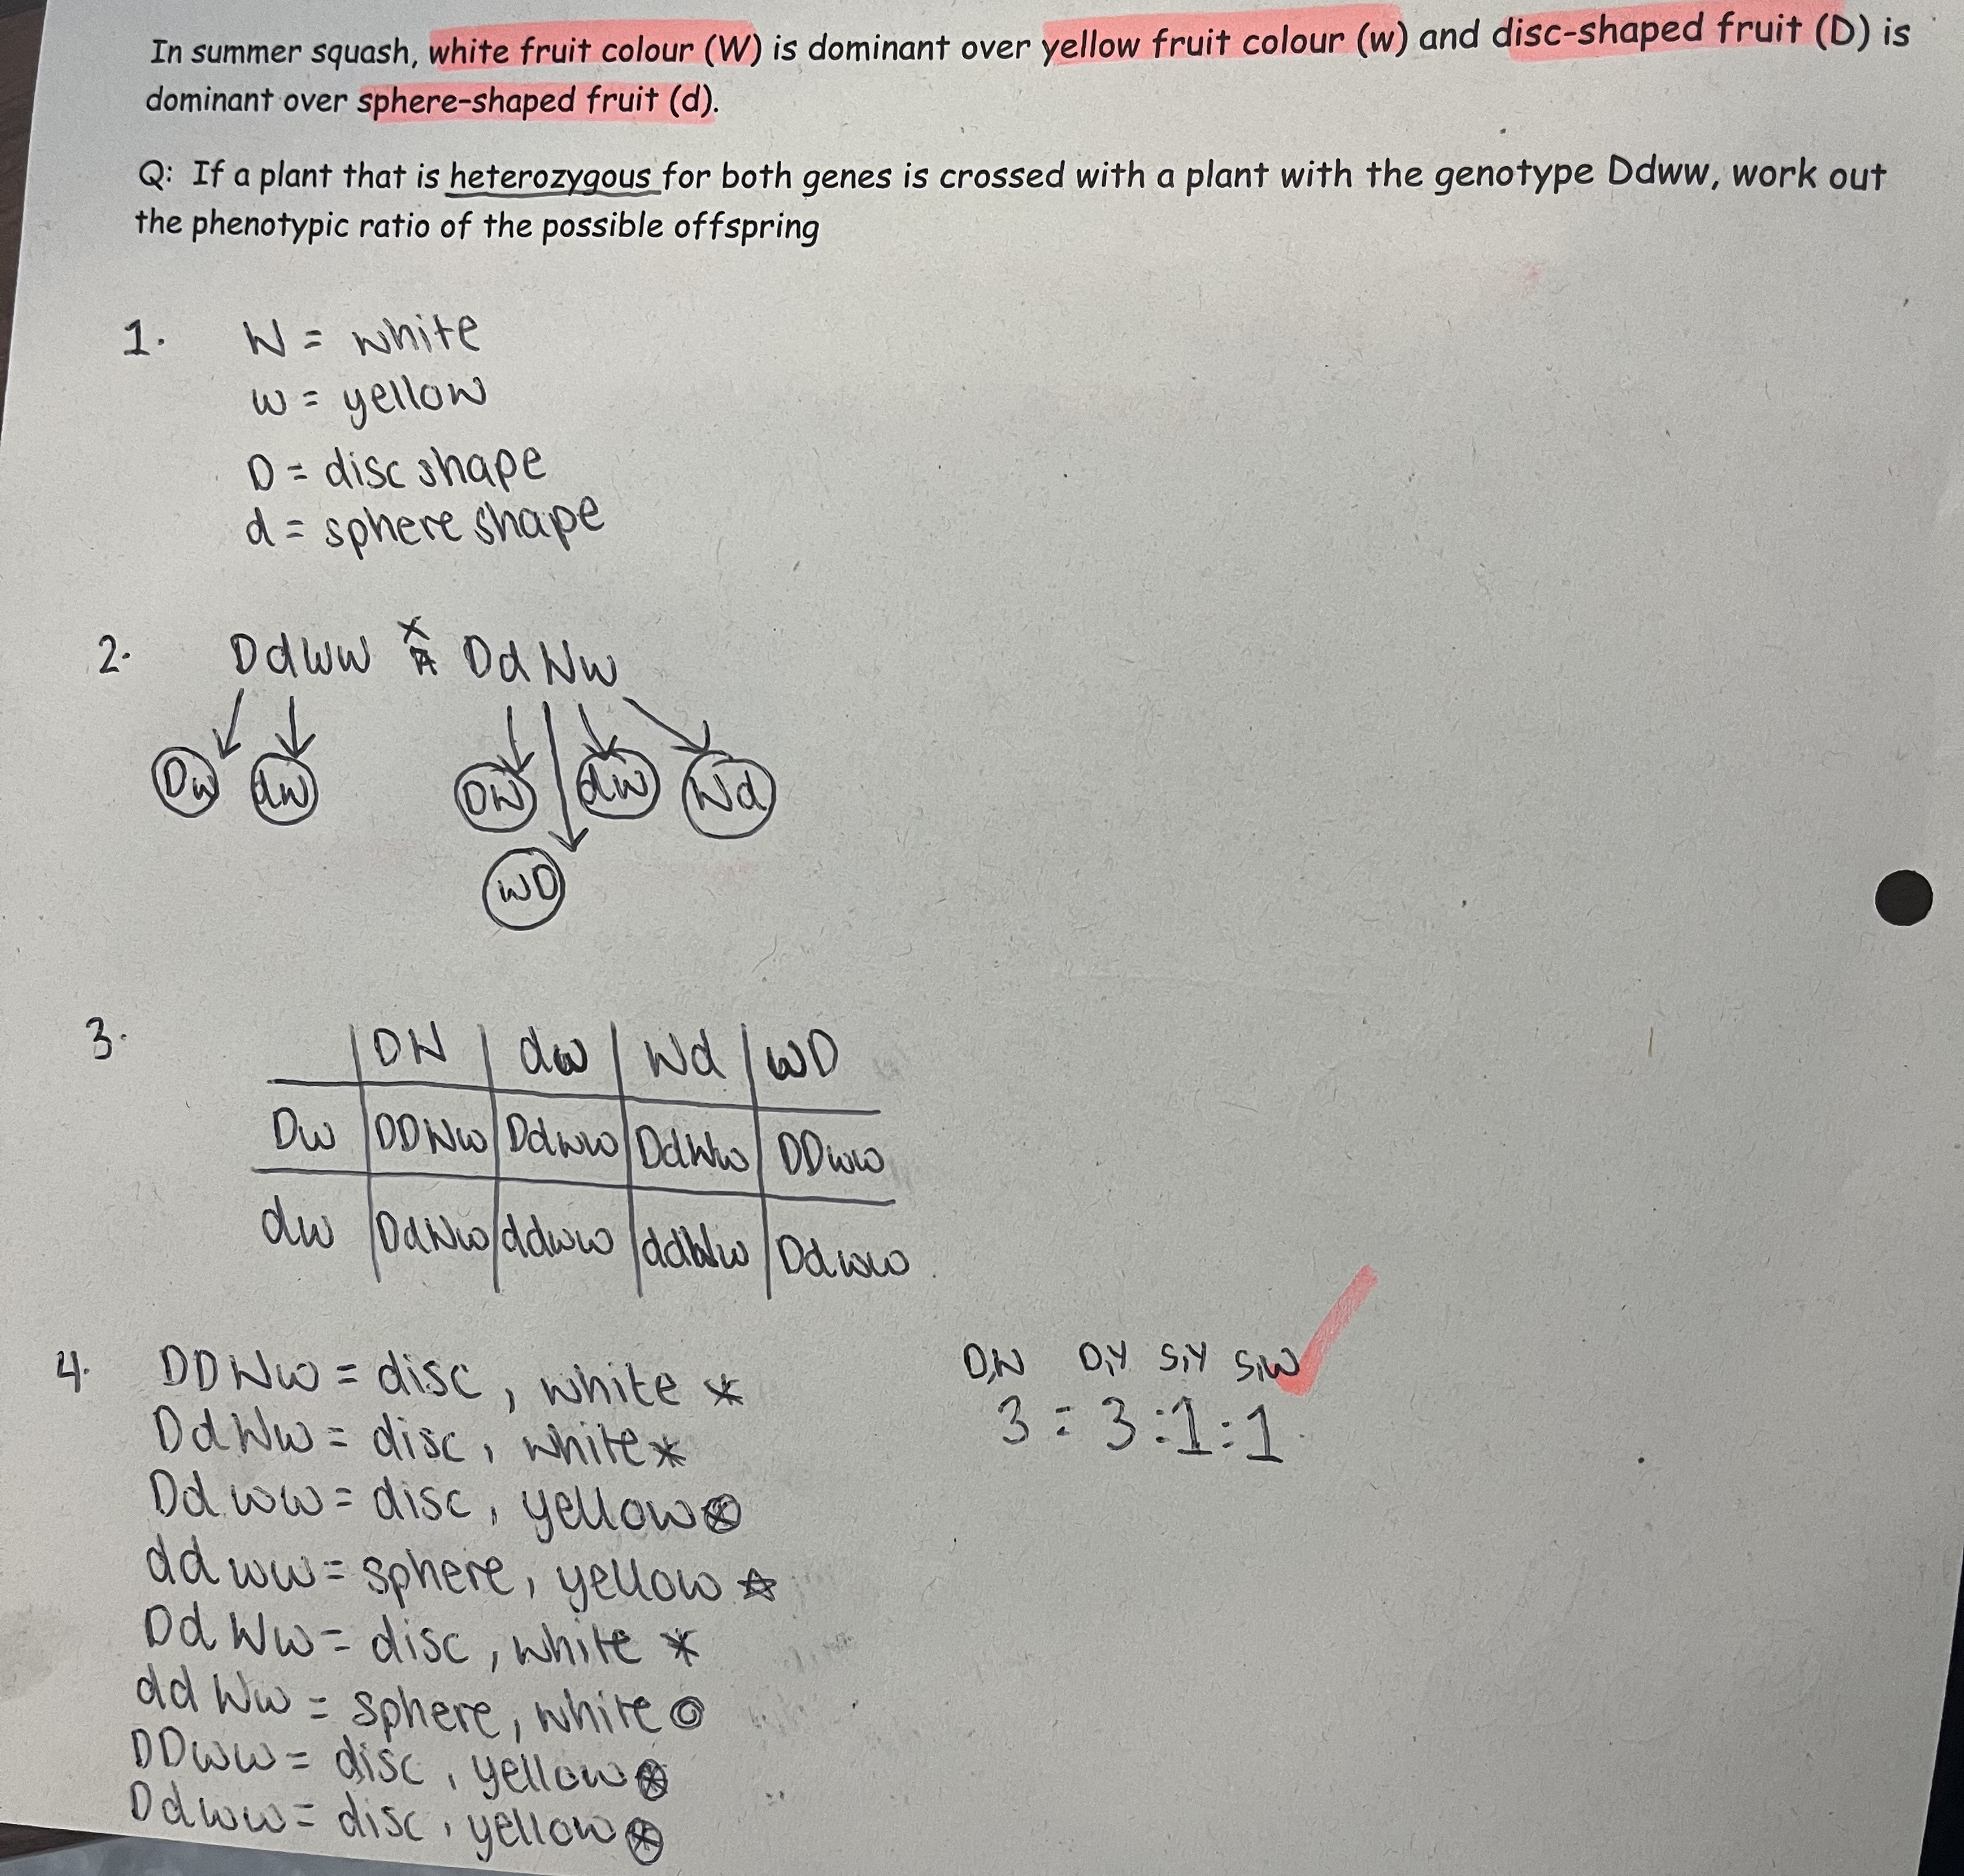 In summer squash, white fruit colour (W) is dominant over yellow fruit colour (w) and disc-shaped fruit (D) is
dominant over sphere-shaped fruit (d).
Q: If a plant that is heterozygous for both genes is crossed with a plant with the genotype Ddww, work out
the phenotypic ratio of the possible offspring
1. W = white
w = yellow
D = disc shape
d = sphere shape
2. Ddww x DdWw
Dw dw DW dw Wd
wD
3. DW dw Wd wD
Dw DDWw Ddww DdWw DDww
dw DdWw ddww ddWw Ddww
4. DDWw = disc, white *
DdWw = disc, white *
Ddww = disc, yellow
ddww = sphere, yellow ☆
DdWw = disc, white *
ddWw = sphere, white
DDww = disc, yellow
Ddww = disc, yellow
D,W D,Y S,Y S,W
3 : 3 : 1 : 1